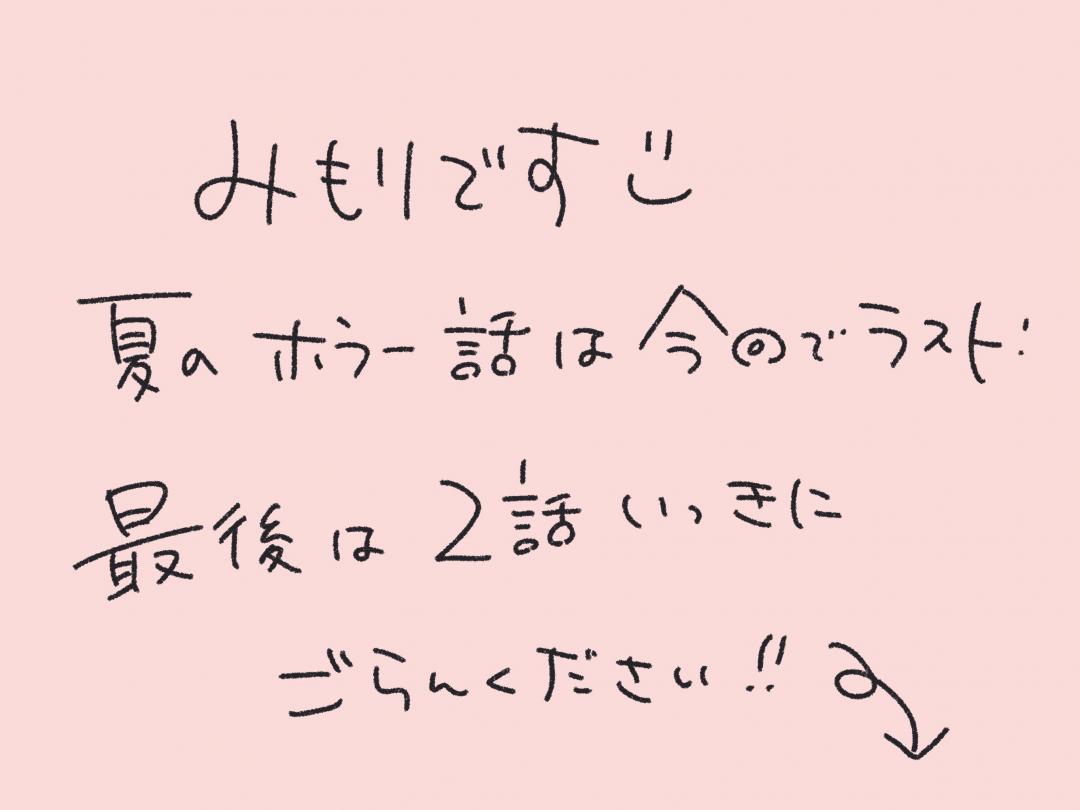 みもりです
夏のホラー話は今のでラスト!
最後は2話いっきに
ごらんください!!